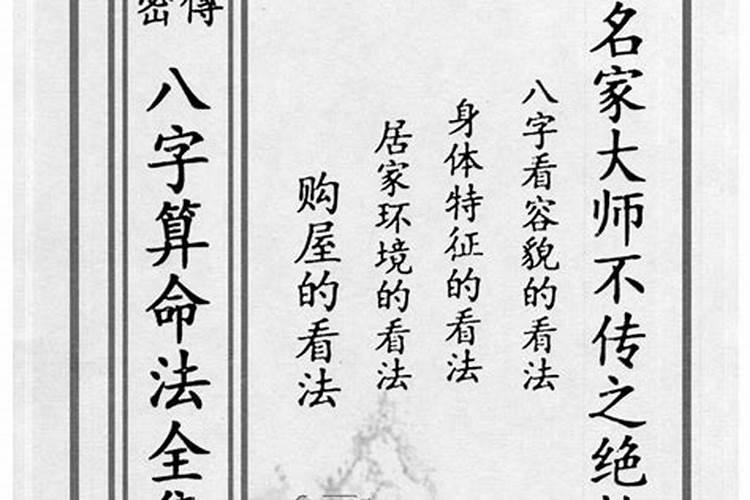 名家大师不传之绝
八字看容貌的看法
身体特征的看法
居家环境的看法
购屋的看法
密傳
八字算命法全